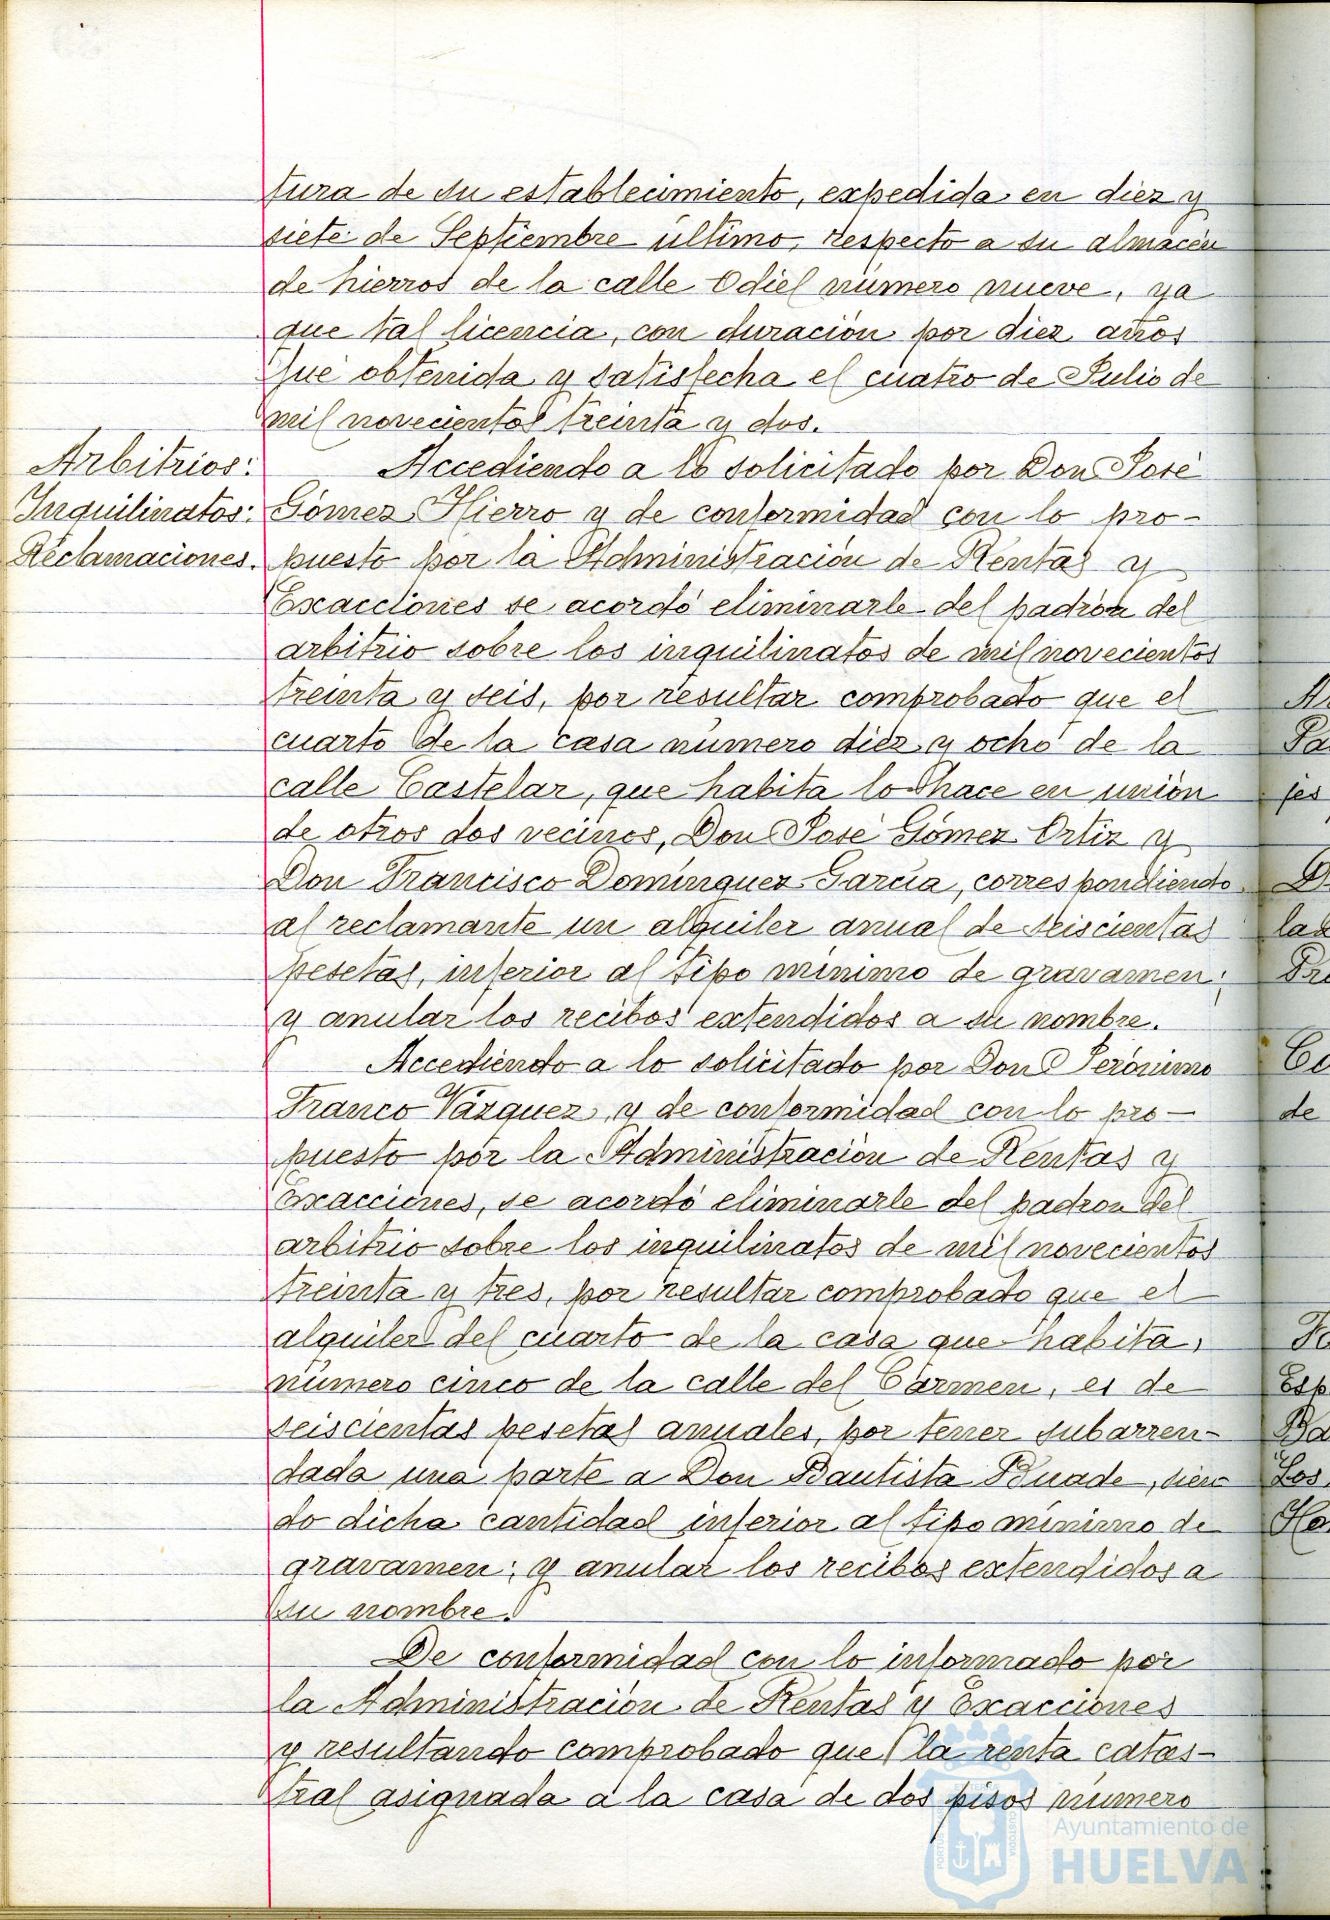 tura de su establecimiento, expedida en diez y
siete de Septiembre último, respecto a su almacén
de hierros de la calle Odiel número nueve, ya
que tal licencia, con duración por diez años
fué obtenida y satisfecha el cuatro de Julio de
mil novecientos treinta y dos.
Arbitrios:
Inquilinatos:
Reclamaciones.
Accediendo a lo solicitado por Don José
Gómez Hierro y de conformidad con lo pro-
puesto por la Administración de Rentas y
Exacciones se acordó eliminarle del padrón del
arbitrio sobre los inquilinatos de mil novecientos
treinta y seis, por resultar comprobado que el
cuarto de la casa número diez y ocho de la
calle Castelar, que habita lo hace en unión
de otros dos vecinos, Don José Gómez Ortiz y
Don Francisco Domínguez García, correspondiendo
al reclamante un alquiler anual de seiscientas
pesetas, inferior al tipo mínimo de gravamen;
y anular los recibos extendidos a su nombre.
Accediendo a lo solicitado por Don Jerónimo
Franco Vázquez, y de conformidad con lo pro-
puesto por la Administración de Rentas y
Exacciones, se acordó eliminarle del padron del
arbitrio sobre los inquilinatos de mil novecientos
treinta y tres, por resultar comprobado que el
alquiler del cuarto de la casa que habita,
número cinco de la calle del Carmen, es de
seiscientas pesetas anuales, por tener subarren-
dada una parte a Don Bautista Buade, sien-
do dicha cantidad inferior al tipo mínimo de
gravamen; y anular los recibos extendidos a
su nombre.
De conformidad con lo informado por
la Administración de Rentas y Exacciones
y resultando comprobado que la renta catas-
tral asignada a la casa de dos pisos número
Ar
Pa
jes
D
las
Pro
Co
de
Esp
Ba
"Los
Ho
Ayuntamiento de
HUELVA